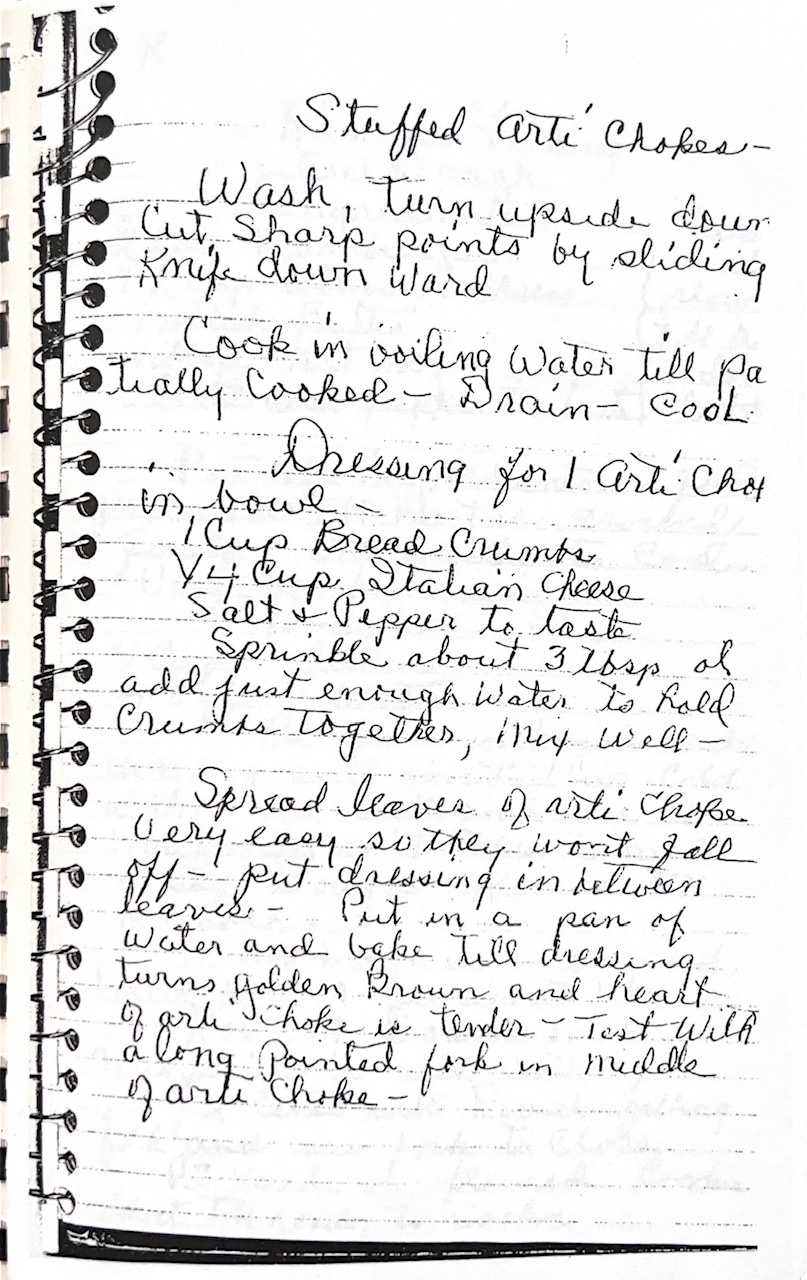 Stuffed Arti Chokes-
Wash, turn upside down
Cut Sharp points by sliding
Knife down ward
Cook in boiling Water till pa
tially Cooked - Drain - Cool
Dressing for 1 Arti Chok
in bowl -
1 Cup Bread Crumbs
1/4 Cup Italian Cheese
Salt & Pepper to taste
Sprinkle about 3 Tbsp
add just enough Water to hold
Crumbs Together, Mix Well -
Spread leaves of arti Choke
Very easy so they wont fall
off - put dressing in between
leaves - Put in a pan of
Water and bake till dressing
turns golden Brown and heart
of arti Choke is tender - Test With
a long Pointed fork in Middle
of arti Choke -